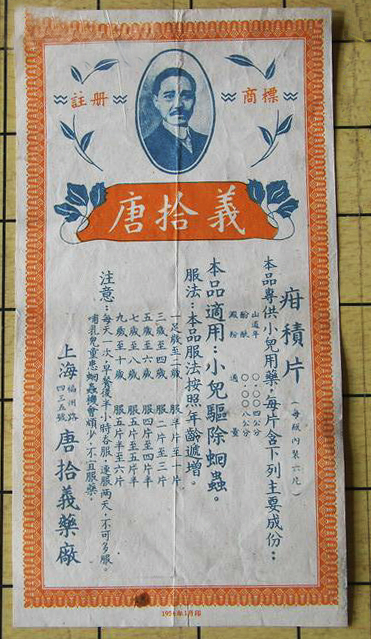 註册 商標
唐拾義
疳積片
(每瓶內裝六片)
本品專供小兒用藥。每片含下列主要成份:
山道年 〇.〇〇四公分
酚酞 〇.〇〇八公分
澱粉 適量
本品適用:小兒驅除蛔蟲。
服法:本品服法按照年齡遞增。
一足歲至二歲 服半片至一片
三歲至四歲 服二片至三片
五歲至六歲 服四片至四片半
七歲至八歲 服五片至五片半
九歲至十歲 服五片半至六片
注意:每天一次,早餐後半小時吞服,連服兩天,不可多服。
哺乳兒童患蛔蟲機會頗少,不宜服藥。
上海福州路
四三五號
唐拾義藥廠
1954年1月印